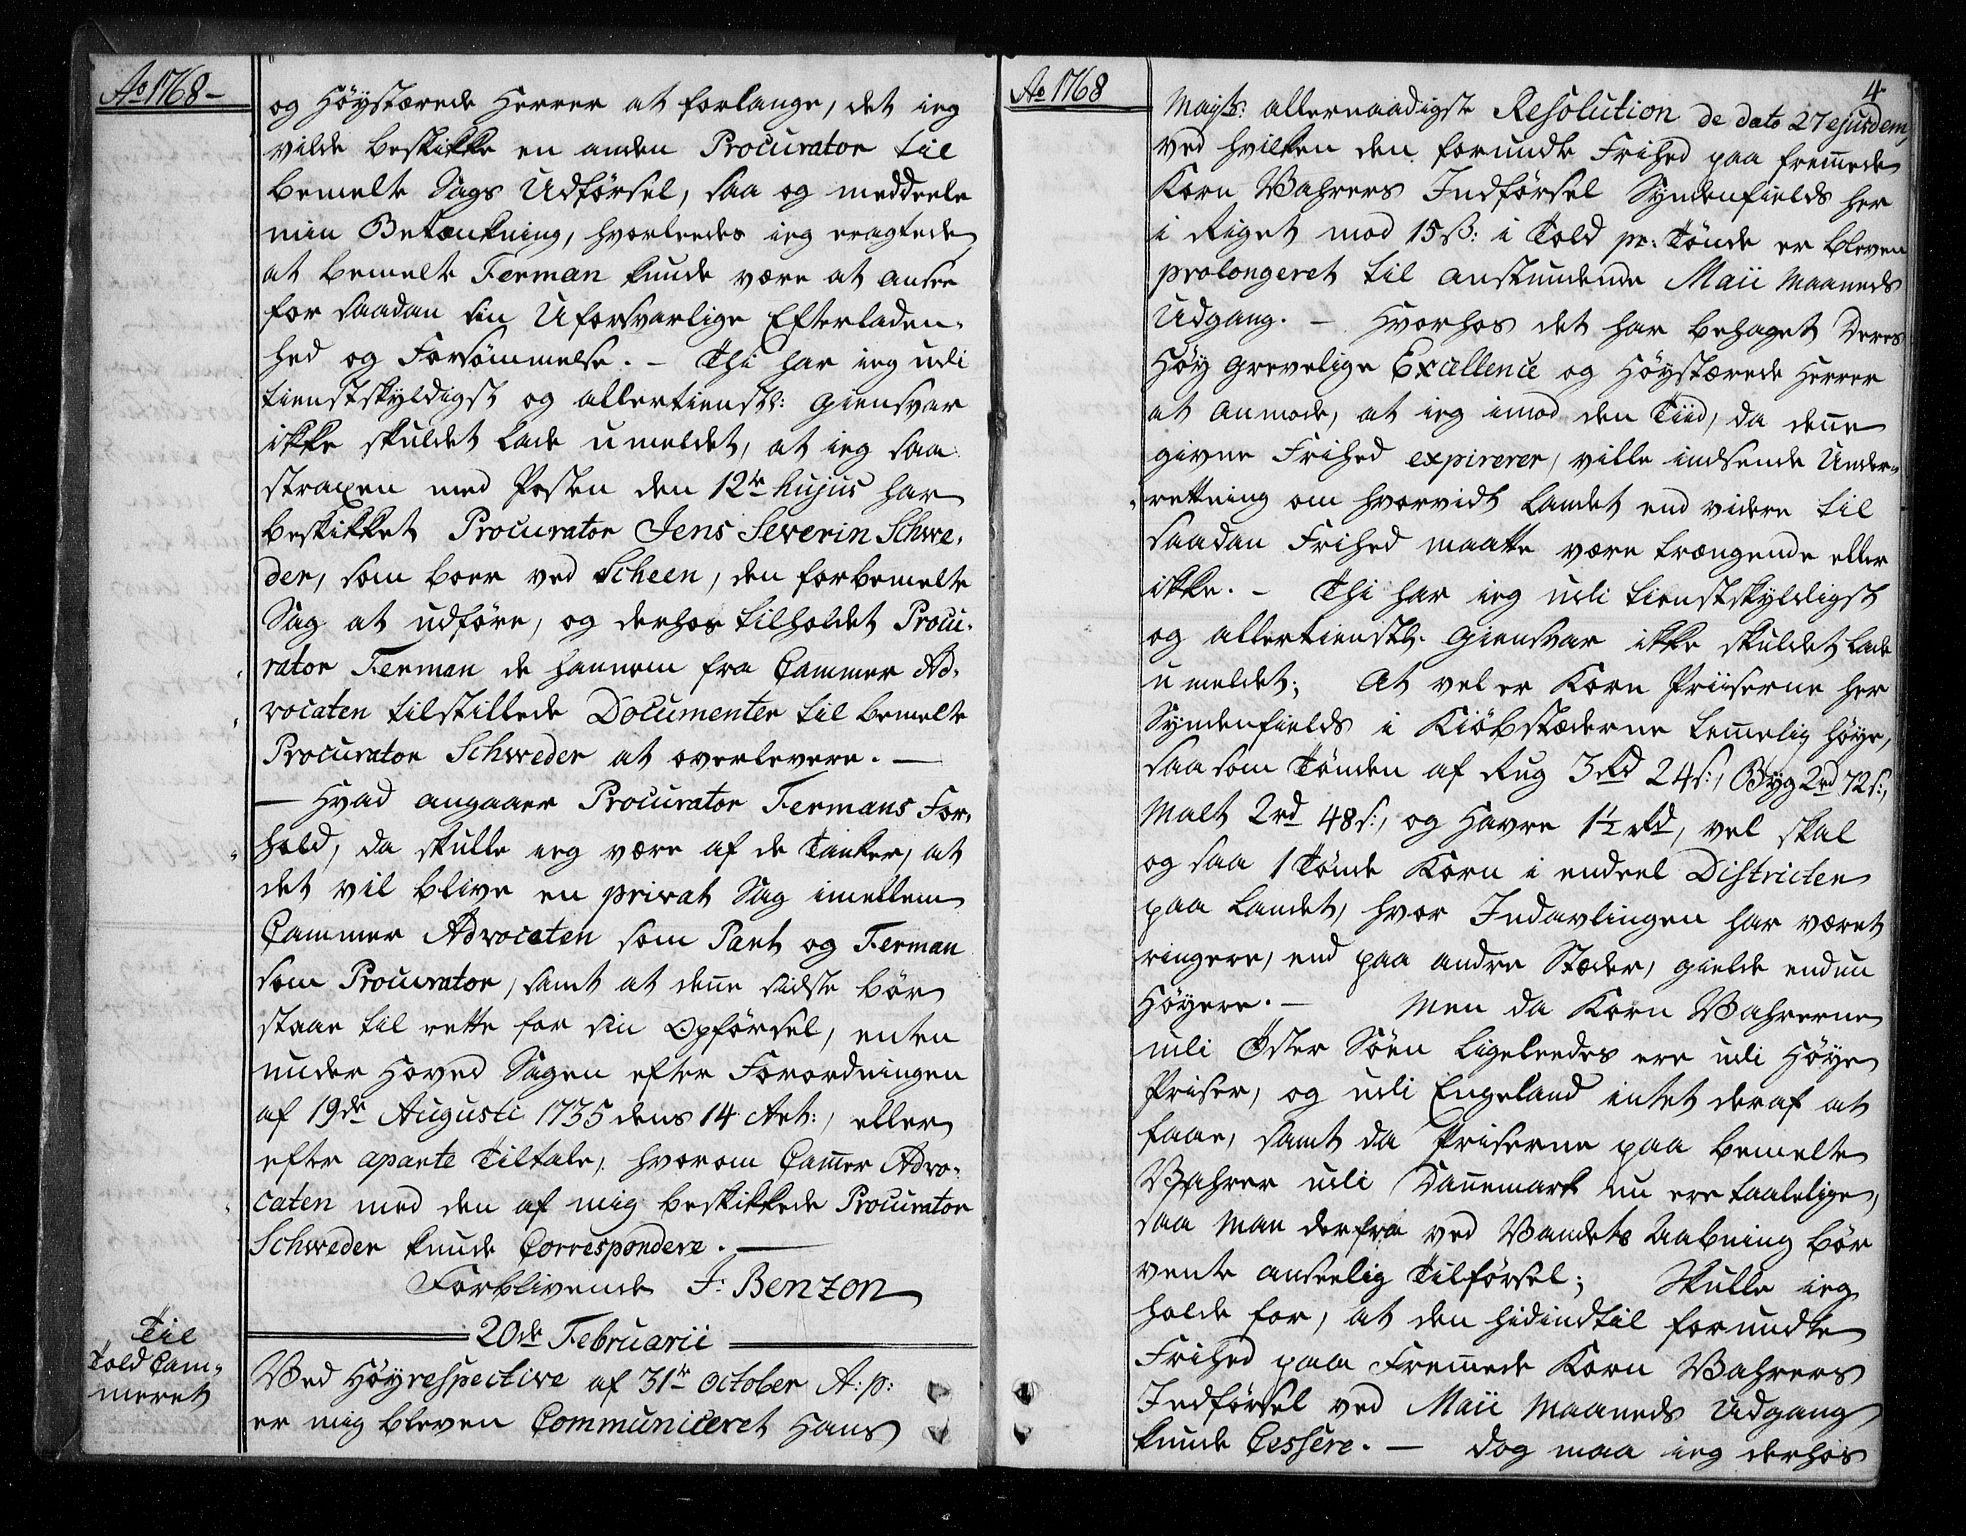 Ao 1768 –
og Høystærede Herrer at forlange, det ieg
vilde beskikke en anden Procurator til
bemelte Sags Udførsel, saa og meddeele
min Betænkning, hvorleedes ieg eragtede
at bemelte Ferman kunde være at ansee
for saadan sin Uforsvarlige Efterladen-
hed og Forsømmelse. – Thi har ieg udi
tienstskyldigst og allertienstl: giensvar
ikke skuldet lade umeldet, at ieg saa
straxen med Posten den 12te hujus har
beskikket Procurator Jens Severin Schwe-
der, som boer ved Scheen, den forbemelte
Sag at udføre, og derhos tilholdet Procu-
rator Ferman de hannem fra Cammer Ad-
vocaten tilstillede Documenter til bemelte
Procurator Schweder at overlevere. –
– Hvad angaaer Procurator Fermans For-
hold, da skulle ieg være af de Tanker, at
det vil blive en privat Sag imellem
Cammer Advocaten som Part og Ferman
som Procurator, samt at deñe sidste bør
staae til rette for sin Opførsel, enten
under Hoved Sagen efter Forordningen
af 19de Augusti 1735 dens 14 Art:, eller
efter aparte Tiltale, hvorom Cam̄er Advo-
caten med den af mig beskikkede Procurator
Schweder kunde Correspondere. –
Forblivende J: Benzon
20de Februarii
Til
Told Cam-
meret
Ved Høyrespective af 31te October A: p:
er mig bleven Communiceret Hans
Ao 1768
4
Mayts: allernaadigste Resolution de dato 27 ejusdem,
ved hvilken den forundte Frihed paa frem̄ede
Korn Vahrers Indførsel Syndenfields her
i Riget mod 15 ß: i Told pr: Tønde er bleven
prolongeret til anstundende Maii Maaneds
Udgang. – Hvorhos det har behaget Deres
Høy Grevelige Excellence og Høystærede Herrer
at anmode, at ieg imod den Tiid, da deñe
givne Frihed expirerer, ville indsende Under-
rettning om hvorvidt Landet end videre til
saadan Frihed maatte være trængende eller
ikke. – Thi har ieg udi tienstskyldigst
og allertienstl. giensvar ikke skuldet lade
umeldet; At vel er Korn Priiserne her
Syndenfields i Kiøbstæderne tem̄elig høye,
saasom Tønden af Rug 3 Rd 24 s:, Byg 2 rd 72 s:,
Malt 2 rd 48 s:, og Havre 1½ Rd, vel skal
og saa 1 Tønde Korn i endeel Districter
paa Landet, hvor Indavlingen har været
ringere, end paa andre Stæder, gielde endnu
høyere. – Men da Korn Vahrerne
udi Øster Søen ligeleedes ere udi høye
Priser, og udi Engeland intet deraf at
faae, samt da Priserne paa bemelte
Vahrer udi Dañemark nu ere taalelige,
saa man derfra ved Vandets Aabning bør
vente anseelig Tilførsel; Skulle ieg
holde for, at den hidindtil forundte
Frihed paa Frem̄ede Korn Vahrers
Indførsel ved Maii Maaneds Udgang
kunde Cessere. – Dog maa ieg derhos